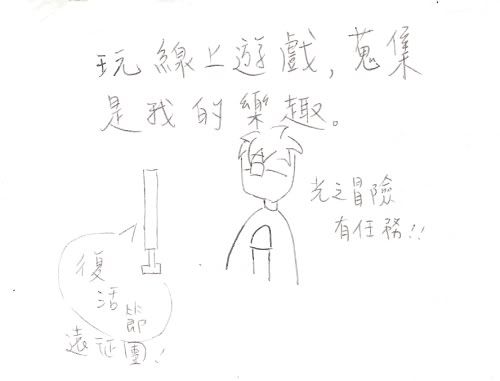 玩線上遊戲,蒐集
是我的樂趣。
光之冒險
有任務!!
復
活
節
遠征團!!